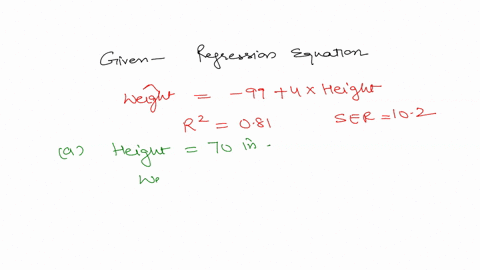 Given— Regression Equation
Weight^ = -99 + 4 × Height
R² = 0.81 SER = 10.2
(a) Height = 70 in.
We